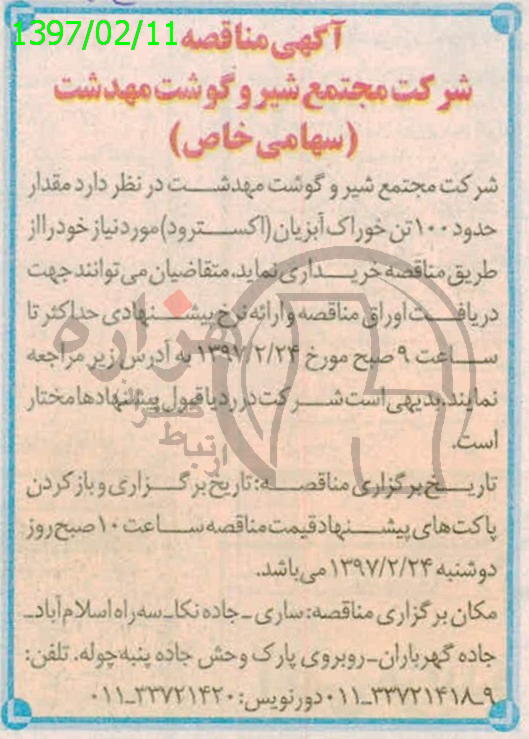 1397/02/11
آگهی مناقصه
شرکت مجتمع شیر و گوشت مهدشت
(سهامی خاص)
شرکت مجتمع شیر و گوشت مهدشت در نظر دارد مقدار
حدود ۱۰۰ تن خوراک آبزیان (اکسترود) مورد نیاز خود را از
طریق مناقصه خریداری نماید، متقاضیان می توانند جهت
دریافت اوراق مناقصه و ارائه نرخ پیشنهادی حداکثر تا
ساعت ۹ صبح مورخ ۱۳۹۷/۲/۲۴ به آدرس زیر مراجعه
نمایند، بدیهی است شرکت در رد یا قبول پیشنهادها مختار
است.
تاریخ برگزاری مناقصه: تاریخ برگزاری و باز کردن
پاکت های پیشنهاد قیمت مناقصه ساعت ۱۰ صبح روز
دوشنبه ۱۳۹۷/۲/۲۴ می باشد.
مکان برگزاری مناقصه: ساری ـ جاده نکا ـ سه راه اسلام آباد ـ
جاده گهرباران ـ روبروی پارک وحش جاده پنبه چوله. تلفن:
۹ـ۳۳۷۲۱۴۱۸ـ۰۱۱ دور نویس: ۳۳۷۲۱۴۲۰ـ۰۱۱
هزاره
ارتباط